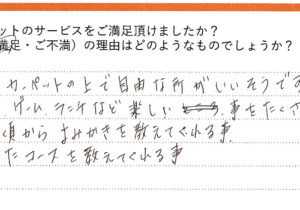 ットのサービスをご満足頂けましたか？
満足・ご不満）の理由はどのようなものでしょうか？
カーペットの上で自由な所がいいそうです
ゲーム ランチなど楽しい 事をたくさ
頃から はみがきを教えてくれる事
たコースを教えてくれる事